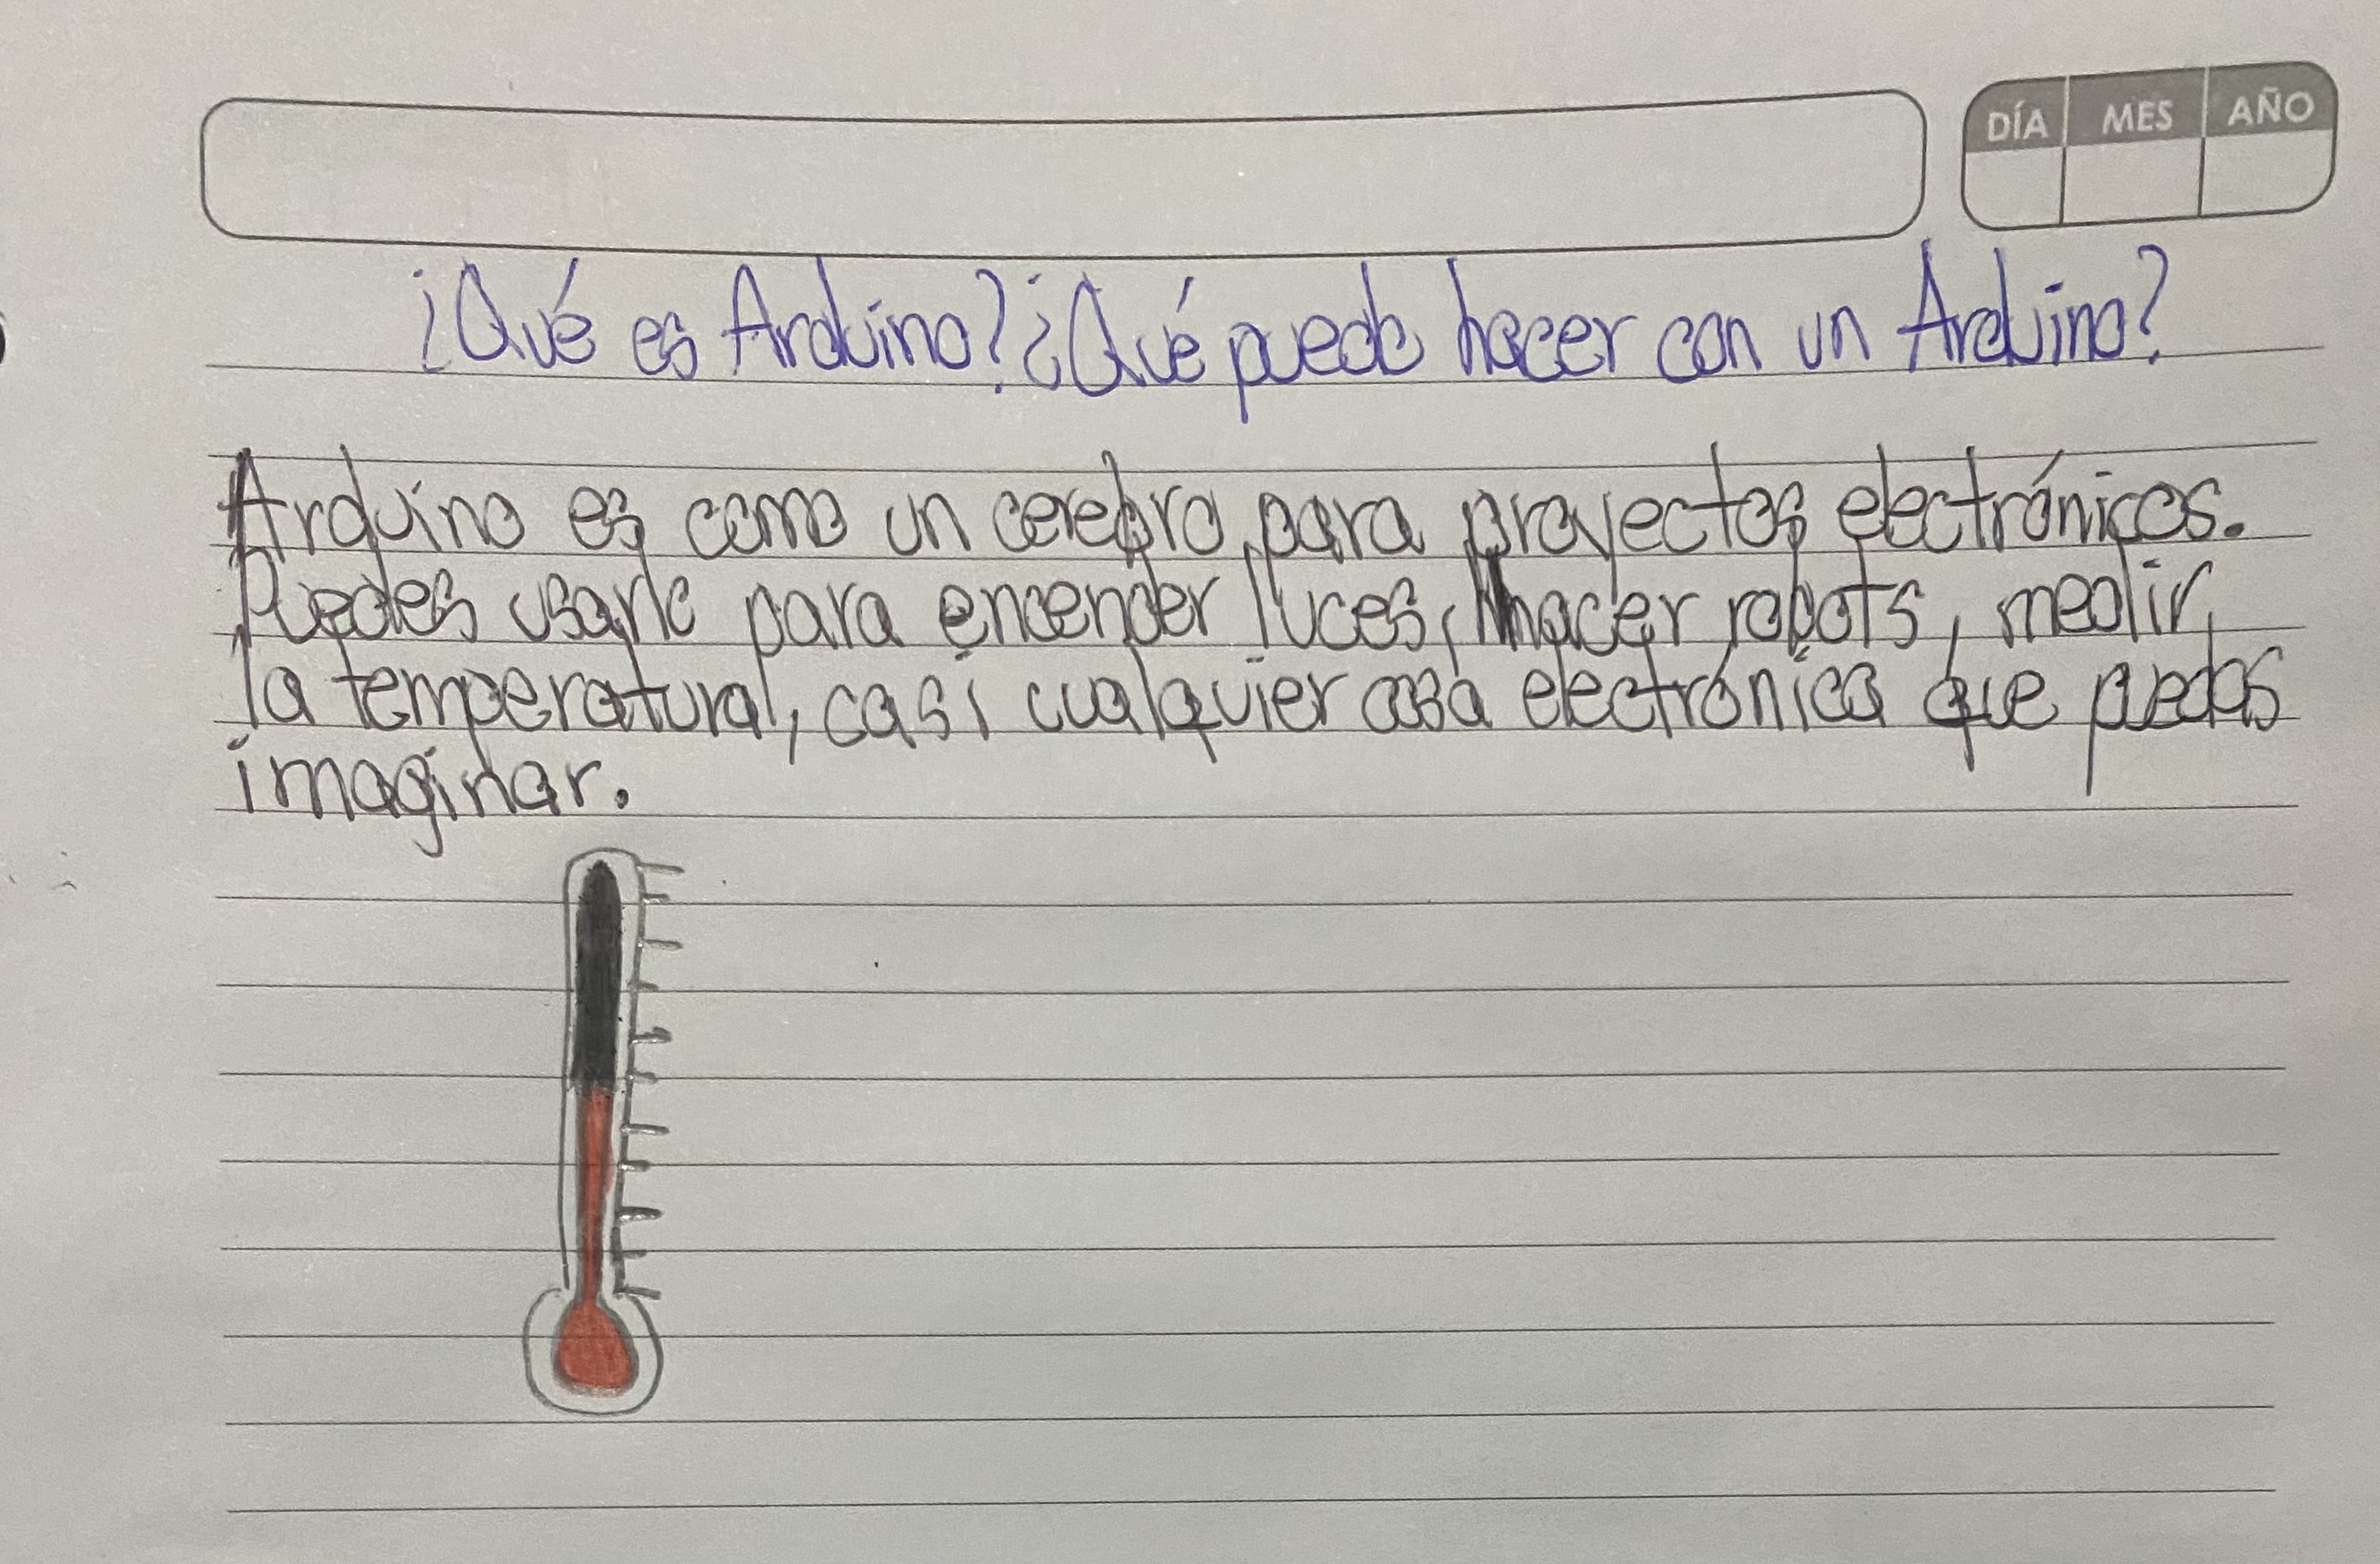 DÍA MES AÑO
¿Qué es Arduino? ¿Qué puedo hacer con un Arduino?
Arduino es como un cerebro para proyectos electrónicos.
Puedes usarlo para encender luces, hacer robots, medir
la temperatural, casi cualquier cosa electrónica que puedas
imaginar.